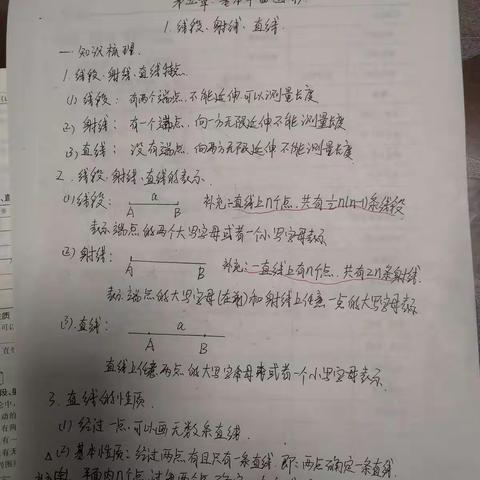 1.线段、射线、直线.
一.知识梳理.
1.线段、射线、直线特点.
(1)线段:有两个端点,不能延伸可以测量长度
(2)射线:有一个端点,向一方无限延伸不能测量长度
(3)直线:没有端点,向两方无限延伸不能测量长度.
2.线段、射线、直线的表示.
(1)线段: a A B 补充:直线上n个点,共有½n(n-1)条线段
表示端点的两个大写字母或者一个小写字母表示
(2)射线: A B 补充:一直线上有n个点,共有2n条射线.
表示端点的大写字母(在前)和射线上任意一点的大写字母表示
(3)直线: a A B
直线上任意两点的大写字母表或者一个小写字母表示.
3.直线的性质.
(1)经过一点,可以画无数条直线.
△(2)基本性质:经过两点有且只有一条直线.即:两点确定一条直线.
平面内几个点,过每两个点